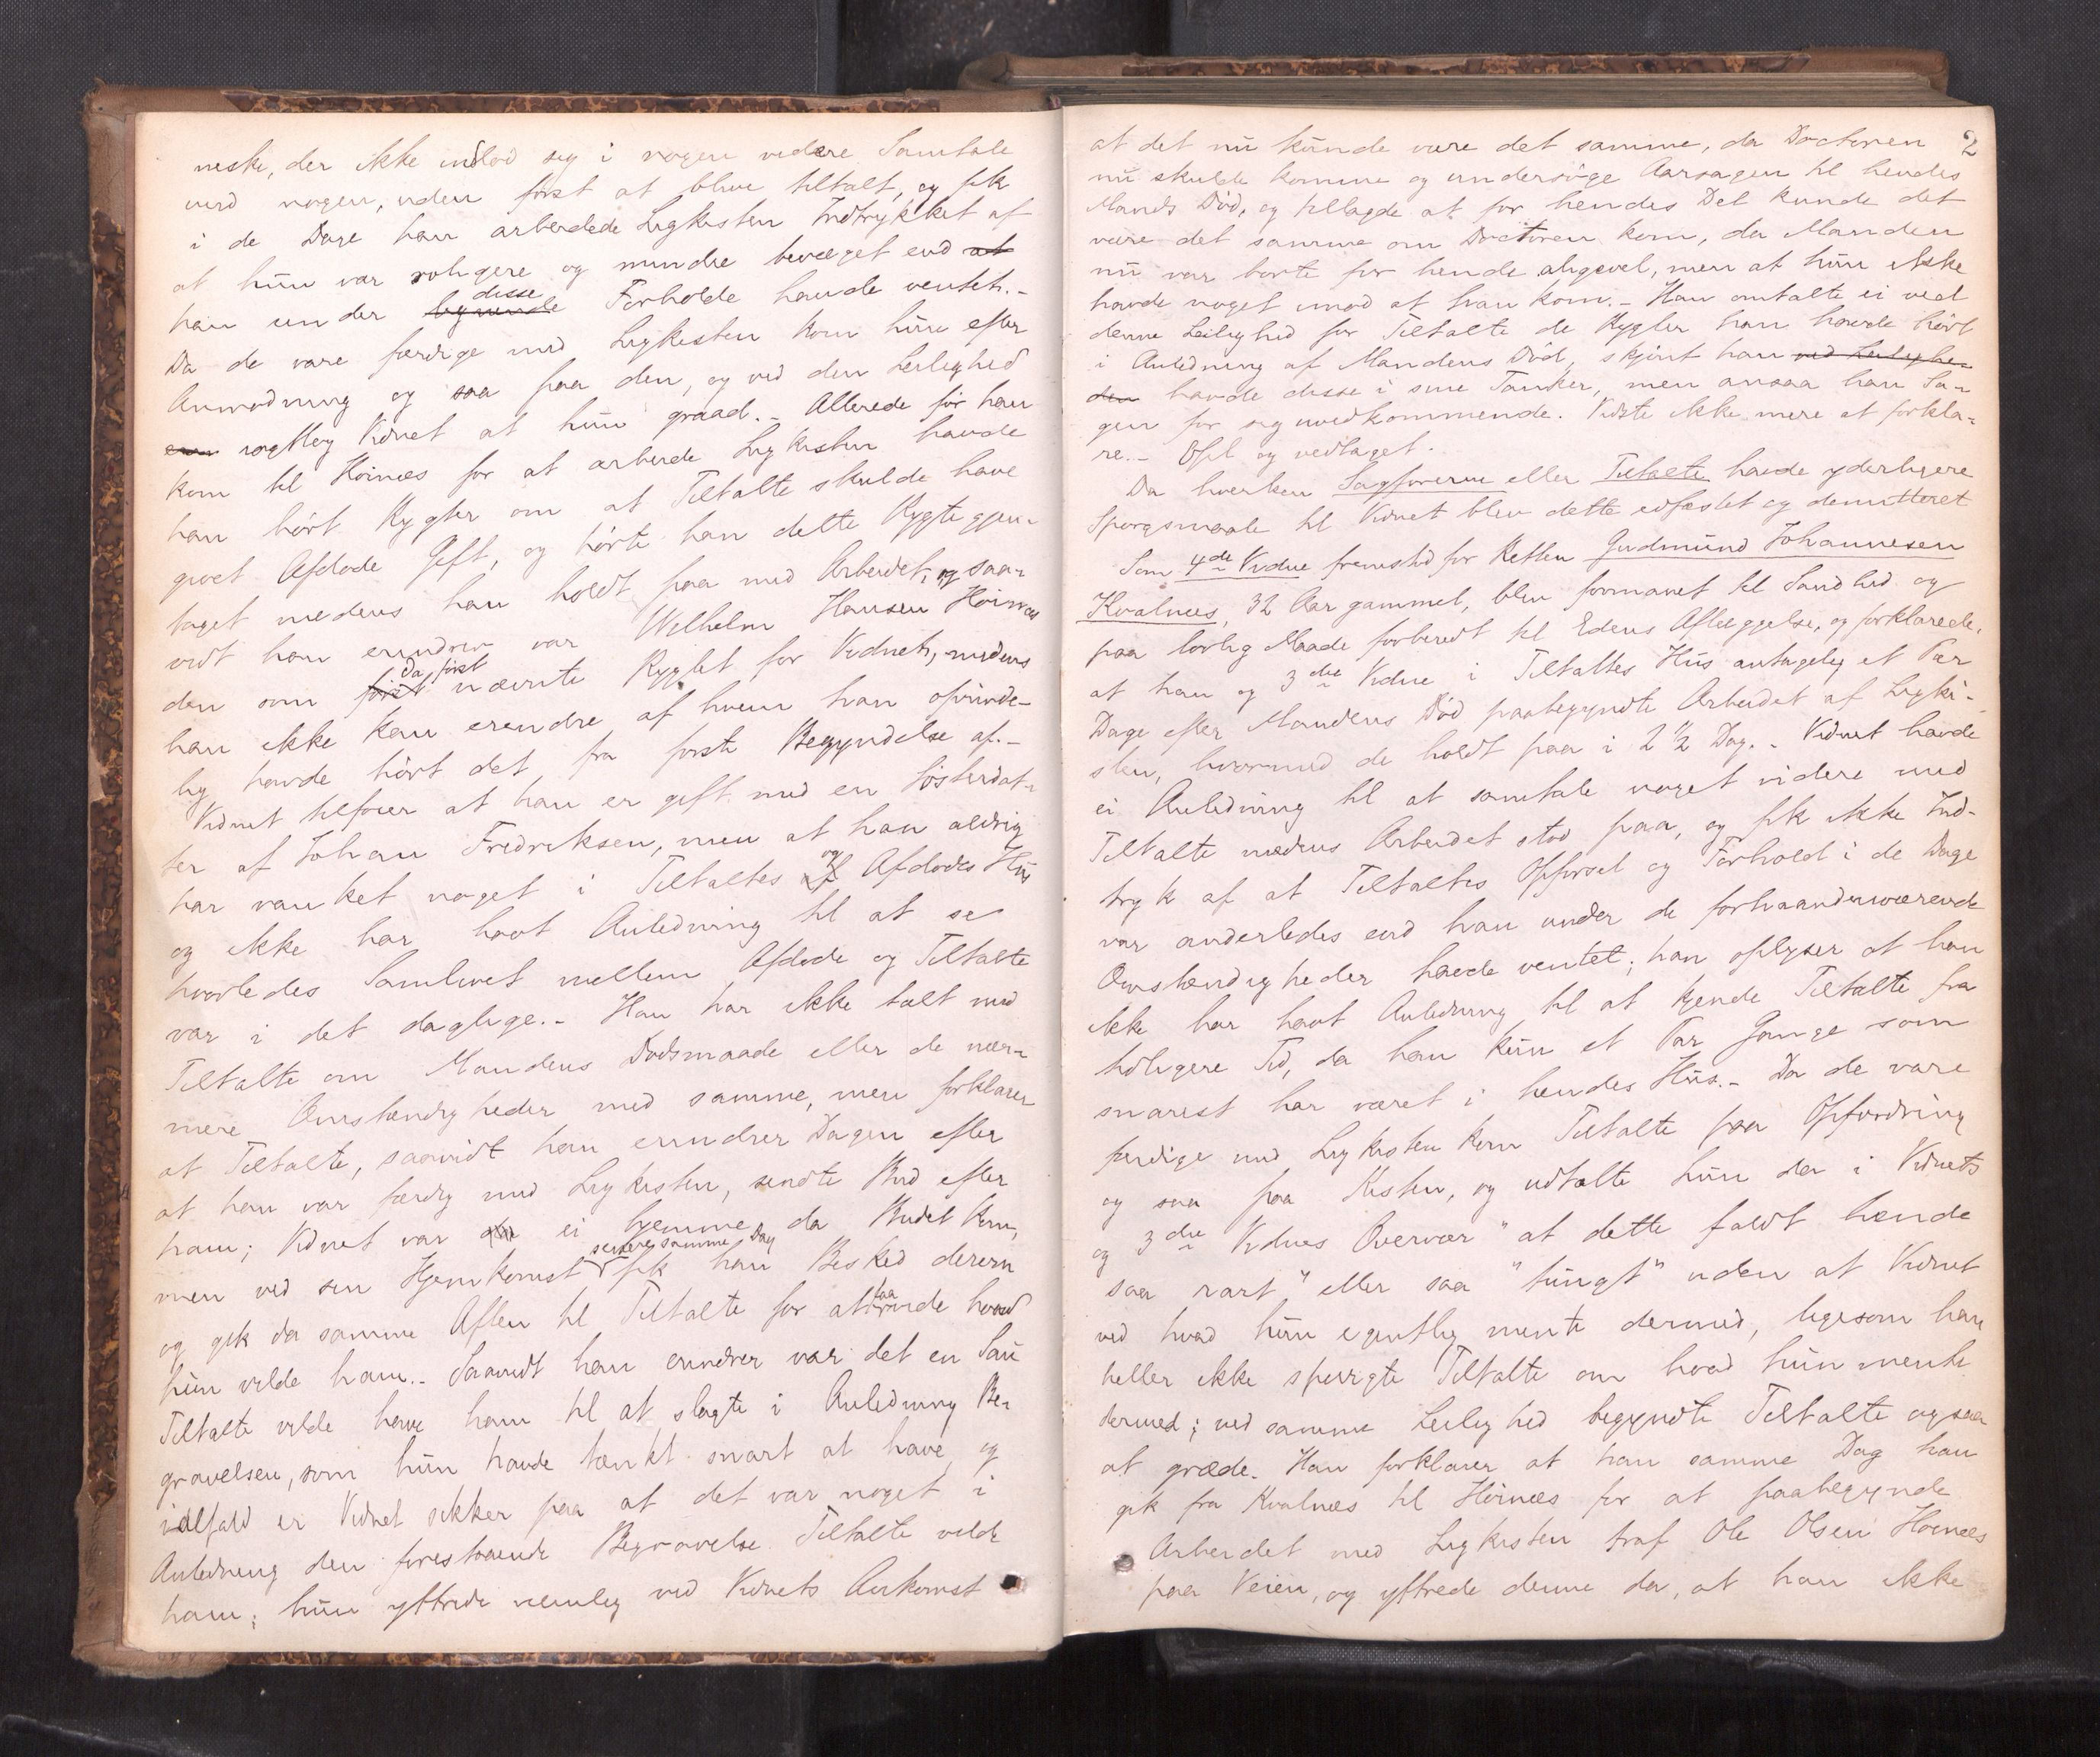 neske, der ikke indlod seg i nogen videre Samtale
med nogen, uden først at blive tiltalt, og fik
i de Dage han arbeidede Ligkisten Indtrykket af
at hun var roligere og mindre bevæget end at
han under disse Forholde havde ventet.-
Da de vare færdige med Ligkisten kom hun efter
Anmodning og saa paa den, og ved den Leilighed
iagttog Vidnet at hun graad.- Allerede før han
kom til Höinæs for at arbeide Ligkisten havde
han hört Rygter om at Tiltalte skulde have
givet Afdöde Gift, og hörte han dette Rygte gjen-
taget medens han holdt paa med Arbeidet, og saa-
vidt han erindrer var Wilhelm Hansen Höinæs
den som först da först nævnte Rygtet for Vidnet, medens
han ikke kan erindre af hvem han oprinde-
lig havde hört det fra förste Begyndelse af.-
Vidnet tilföier at han er gift med en Søsterdat-
ter af Johan Fredriksen, men at han aldrig
har vanket noget i Tiltaltes og Afdödes Hus
og ikke har havt Anledning til at se
hvorledes Samlivet mellem Afdöde og Tiltalte
var i det daglige.- Han har ikke talt med
Tiltalte om Mandens Dödsmaade eller de nær-
mere Omstændigheder med samme, men forklarer
at Tiltalte, saavidt han erindrer Dagen efter
at han var færdig med Ligkisten, sendte Bud efter
ham; Vidnet var ei hjemme da Budet kom,
men ved sin Hjemkomst senere samme Dag fik han Besked derom
og gik da samme Aften til Tiltalte for at faa vide hvad
hun vilde ham.- Saavidt han erindrer var det en Sau
Tiltalte vilde have ham til at slagte i Anledning Be-
gravelsen, som hun havde tænkt snart at have, og
ialfald er Vidnet sikker paa at det var noget i
Anledning den forestaaende Begravelse Tiltalte vilde
ham; hun yttrede nemlig ved Vidnets Ankomst
2
at det nu kunde være det samme, da Doctoren
nu skulde komme og undersöge Aarsagen til hendes
Mands Död, og tillagde at for hendes Del kunde det
være det samme om Doctoren kom, da Manden
nu var borte for hende aligevel, men at hun ikke
havde noget imod at han kom.- Han omtalte ei ved
denne Leilighed for Tiltalte de Rygter han havde hört
i Anledning af Mandens Död, skjönt han ved Leilighe-
den havde disse i sine Tanker, men ansaa han Sa-
gen for sig uvedkommende. Vidste ikke mere at forkla-
re.- Opl og vedtaget.
Da hverken Sagförerne eller Tiltalte havde yderligere
Spørgsmaale til Vidnet blev dette edfæstet og demitteret
Som 4de Vidne fremstod for Retten Gudmund Johannesen
Kvalnæs, 32 Aar gammel, blev formanet til Sandhed og
paa lovlig Maade forberedt til Edens Aflæggelse, og forklarede,
at han og 3die Vidne i Tiltaltes Hus antagelig et Par
Dage efter Mandens Död paabegyndte Arbeidet af Ligki-
sten, hvormed de holdt paa i 2 1/2 Dag.- Vidnet havde
ei Anledning til at samtale noget videre med
Tiltalte medens Arbeidet stod paa, og fik ikke Ind-
tryk af at Tiltaltes Opförsel og Forhold i de Dage
var anderledes end han under de forhaandenværende
Omstændigheder havde ventet; han oplyser at han
ikke har havt Anledning til at kjende Tiltalte fra
tidligere Tid, da han kun et Par Gange som
snarest har været i hendes Hus.- Da de vare
færdige med Ligkisten kom Tiltalte paa Opfordring
og saa paa Kisten, og udtalte hun da i Vidnets
og 3die Vidnes Overvær "at dette faldt hende
saa rart" eller saa "tungt" uden at Vidnet
ved hvad hun egentlig mente dermed, ligesom han
heller ikke spurgte Tiltalte om hvad hun mente
dermed; ved samme Leilighed begyndte Tiltalte ogsaa
at græde. Han forklarer at han samme Dag han
gik fra Kvalnæs til Höinæs for at paabegynde
Arbeidet med Ligkisten traf Ole Olsen Höinæs
paa Veien, og yttrede denne da, at han ikke